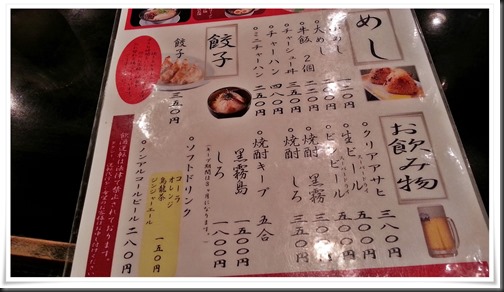 めし
大めし 一五〇円
米飯 2個 二二〇円
チャーシュー丼 三五〇円
チャーハン 四八〇円
ミニチャーハン 二五〇円
餃子
餃子 三五〇円
お飲み物
クリアアサヒ 三五〇円
生ビール 五〇〇円
ビール 五〇〇円
焼酎 黒霧 三五〇円
焼酎 しろ 三〇〇円
焼酎キープ 五合
黒霧島 一五〇〇円
しろ 一八〇〇円
ソフトドリンク 一五〇円
コーラ
オレンジ
烏龍茶
ジンジャーエール
ノンアルコールビール 二八〇円
飲酒運転は法律で禁止されております。